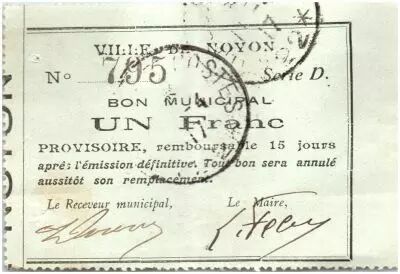 VILLE DE NOYON
No 795 Série D.
BON MUNICIPAL
UN Franc
PROVISOIRE, remboursable 15 jours
après l'émission définitive. Tout bon sera annulé
aussitôt son remplacement.
Le Receveur municipal, Le Maire,
POSTES